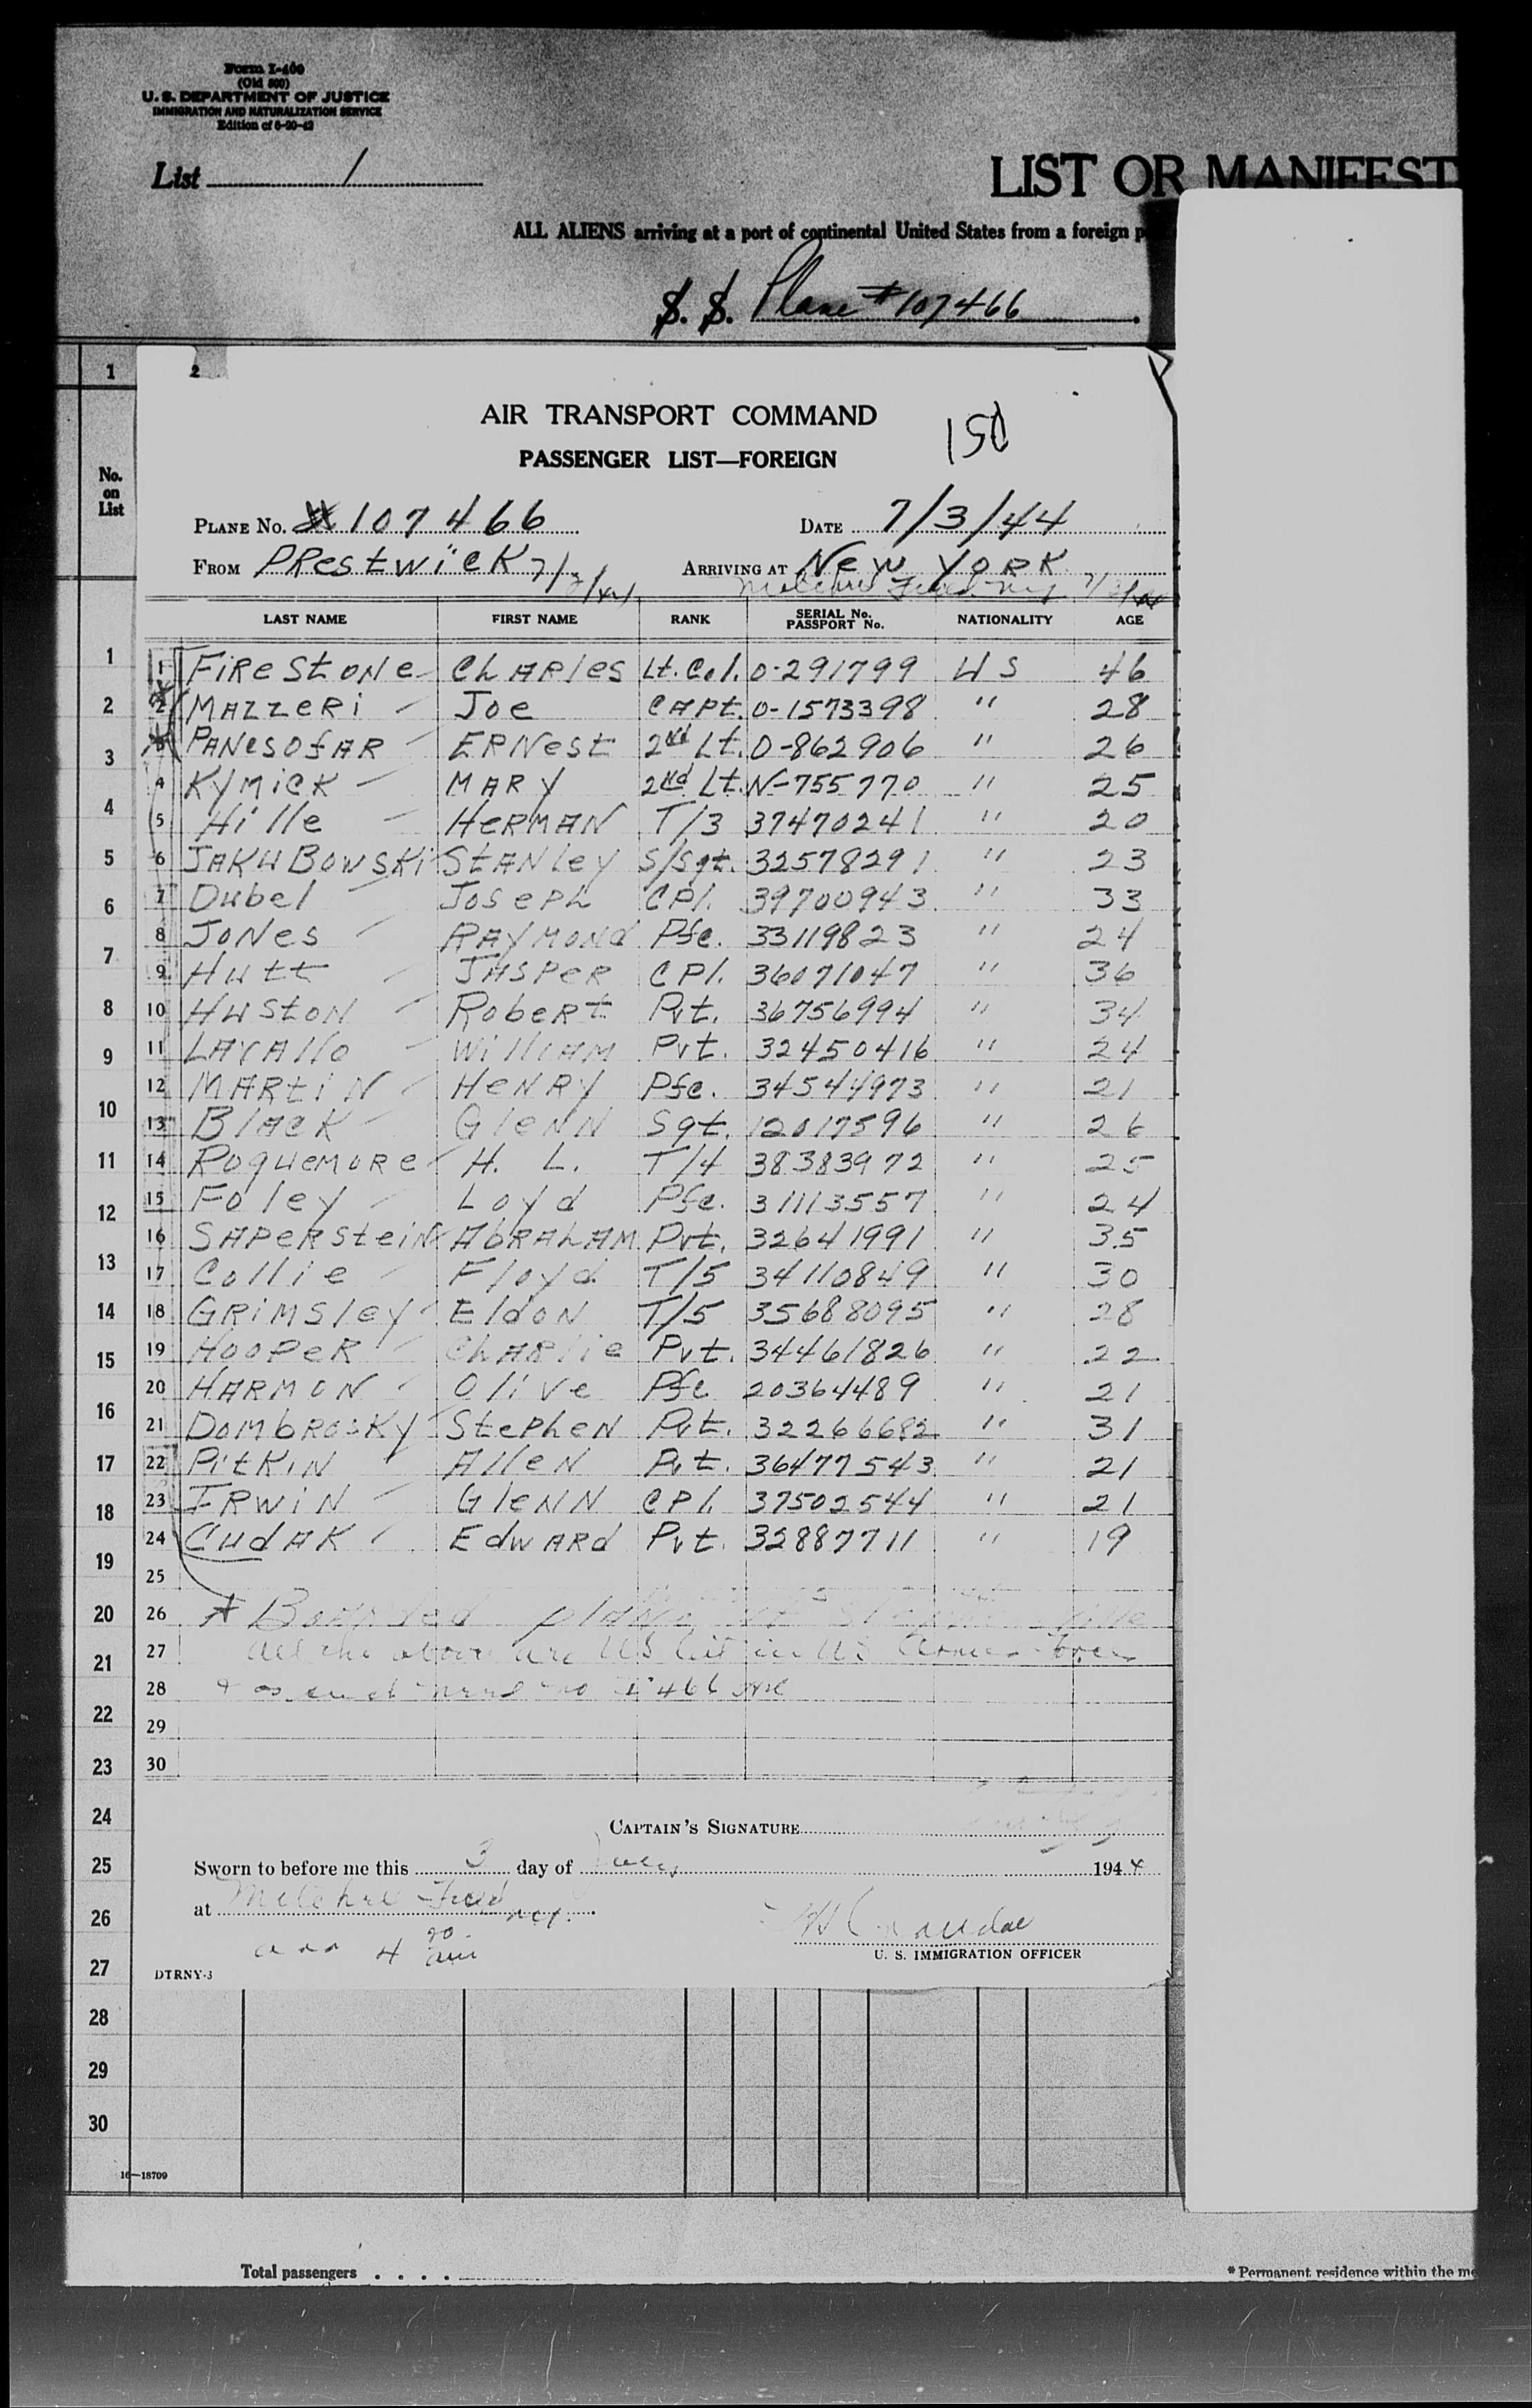 Form I-400
(Old 500)
U. S. DEPARTMENT OF JUSTICE
IMMIGRATION AND NATURALIZATION SERVICE
Edition of 6-20-42
List 1
LIST OR MANIFEST
ALL ALIENS arriving at a port of continental United States from a foreign p
S. S. Plane #107466
1 2
AIR TRANSPORT COMMAND
150
PASSENGER LIST—FOREIGN
No. on List
PLANE No. 107466 DATE 7/3/44
FROM PRestwicK 7/2/44 ARRIVING AT New YORK
LAST NAME FIRST NAME RANK SERIAL No. PASSPORT No. NATIONALITY AGE
1 FiReStONe ChARles Lt. Col. O-291799 US 46
2 MAZZeRi Joe CAPt. O-1573398 " 28
PANesOfAR ERNest 2nd Lt. O-862906 " 26
4 KyMicK MARy 2nd Lt. N-755770 " 25
5 Hille HeRMAN T/3 37470241 " 20
6 JAKUBOWSKi StANley S/Sgt. 32578291 " 23
7 Dubel JosePh CPl. 39700943 " 33
8 JONes RAyMONd Pfc. 33119823 " 24
9 Hutt JASPeR CPl. 36071047 " 36
10 HustON RobeRt Pvt. 36756994 " 34
11 LAVAllo WilliAM Pvt. 32450416 " 24
12 MARtiN HeNRy Pfc. 34544973 " 21
13 BlAcK GleNN Sgt. 12017596 " 26
14 ROqueMORe H. L. T/4 38383972 " 25
15 Foley Loyd Pfc. 31113557 " 24
16 SAPeRSteiN AbRAhAM Pvt. 32641991 " 35
17 Collie Floyd T/5 34110849 " 30
18 GRiMsley EldoN T/5 35688095 " 28
19 HOOPeR ChARlie Pvt. 34461826 " 22
20 HARMON Olive Pfc 20364489 " 21
21 DOMbROsKy StePheN Pvt. 32266682 " 31
22 PitKiN AlleN Pvt. 36477543 " 21
23 IRwiN GleNN CPl. 37502544 " 21
24 CudAK EdwARd Pvt. 32887711 " 19
25
26 * Boarded plane at
27 all the above are US cit in US Armed Forces
28 & as such need no I 466
29
30
CAPTAIN'S SIGNATURE
Sworn to before me this 3 day of July 1944
at Mitchel Field N.Y.
4 20 am
U. S. IMMIGRATION OFFICER
DTRNY-3
1
2
3
4
5
6
7
8
9
10
11
12
13
14
15
16
17
18
19
20
21
22
23
24
25
26
27
28
29
30
16—18709
Total passengers . . . .
* Permanent residence within the me